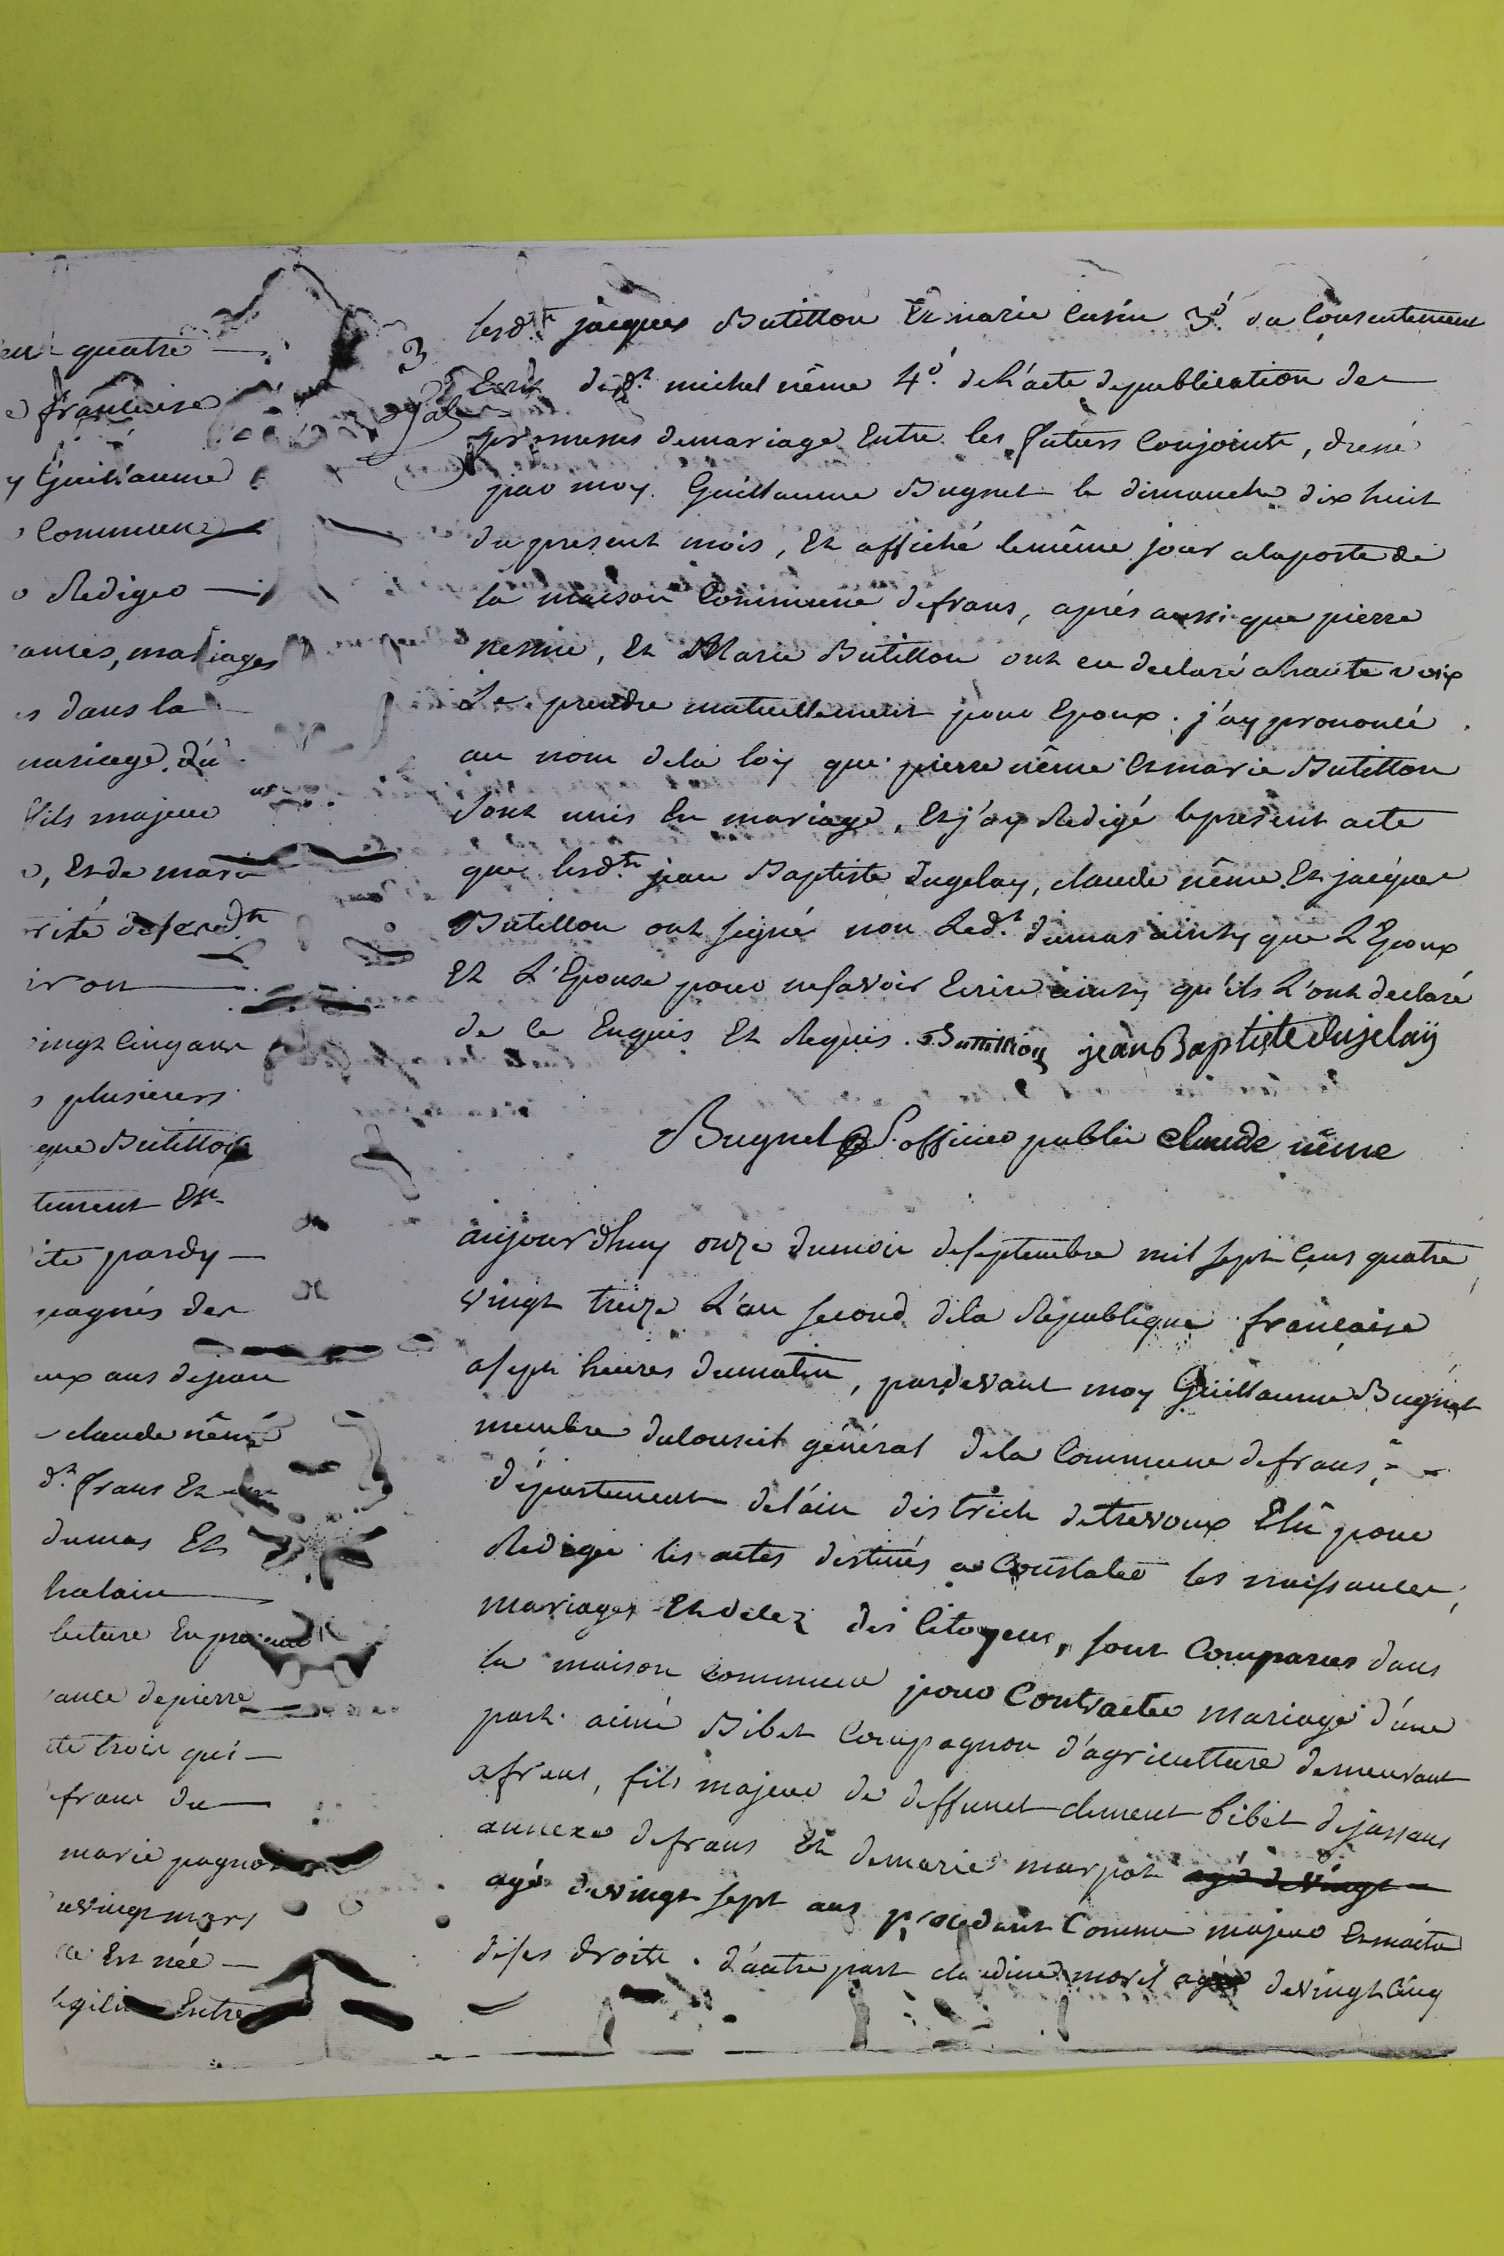 quatre
française
y Guillaume
Commune
Redigeo
ances, mariages
s dans la
mariage du
fils majeur
, Et de marie
rité de ses dts
iron
vingt Cinq ans
plusieurs
que Butillon
tement Et
ite pardy
pagnés der
eux ans dejean
claude néme
dt frans Et
dumas Et
halain
lecture En presence
ance depierre
te trois qui
frans du
marie pagnon
vingt mars
Est née
legilise Entre
3
lesdts jacques Butillon Et marie Cusin 3o. du Consentement
Ecrit dudt michel néme 4o. de l'acte depublication der
promesses demariage Entre les futurs Conjoints, dressé
par moy Guillaume Bugnet le dimanche dix huit
du present mois, Et affiché leméme jour alaporte de
la maison Commune defrans, aprés aussi que pierre
nesme, Et Marie Butillon ont eu declaré ahaute voix
Se prendre mutuellement pour Epoux. j'ay prononcé
au nom dela loy que pierre néme Et marie Butillon
Sont unis En mariage, Et j'ay Redigé lepresent acte
que lesdts jean Baptiste Dugelay, claude néme Et jacques
Butillon ont signé non Ledt dumas ainsy que L'Epoux
Et L'Epouse pour nesavoir Ecrire ainsy qu'ils L'ont declaré
de ce Enquis Et Requis. Buttillion jean Baptiste dujelaÿ
Bugnet officier public claude néme
aujourdhuy onze dumois deseptembre mil sept Cens quatre
vingt treize L'an second dela Republique française
asept heures dumatin, pardevant moy Guillaume Bugnet
membre duConseil général dela Commune defrans,
département del'ain district detrevoux Elû pour
Rediger les actes destinés a Constater les naissances,
mariages Et decez des Citoyens, sont Comparus dans
la maison commune pour Contracter mariage d'une
part aimé Bibet Compagnon d'agriculture demeurant
afrans, fils majeur de deffunct clement bibet dejassans
annexe defrans Et demarie marpot agé de vingt
agé devingt sept ans procedant Comme majeur Et maitre
deses droits. d'autre part claudine morel agée devingt Cinq